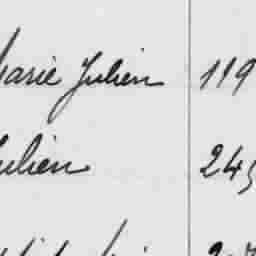 Marie Julien 119
Julien 245